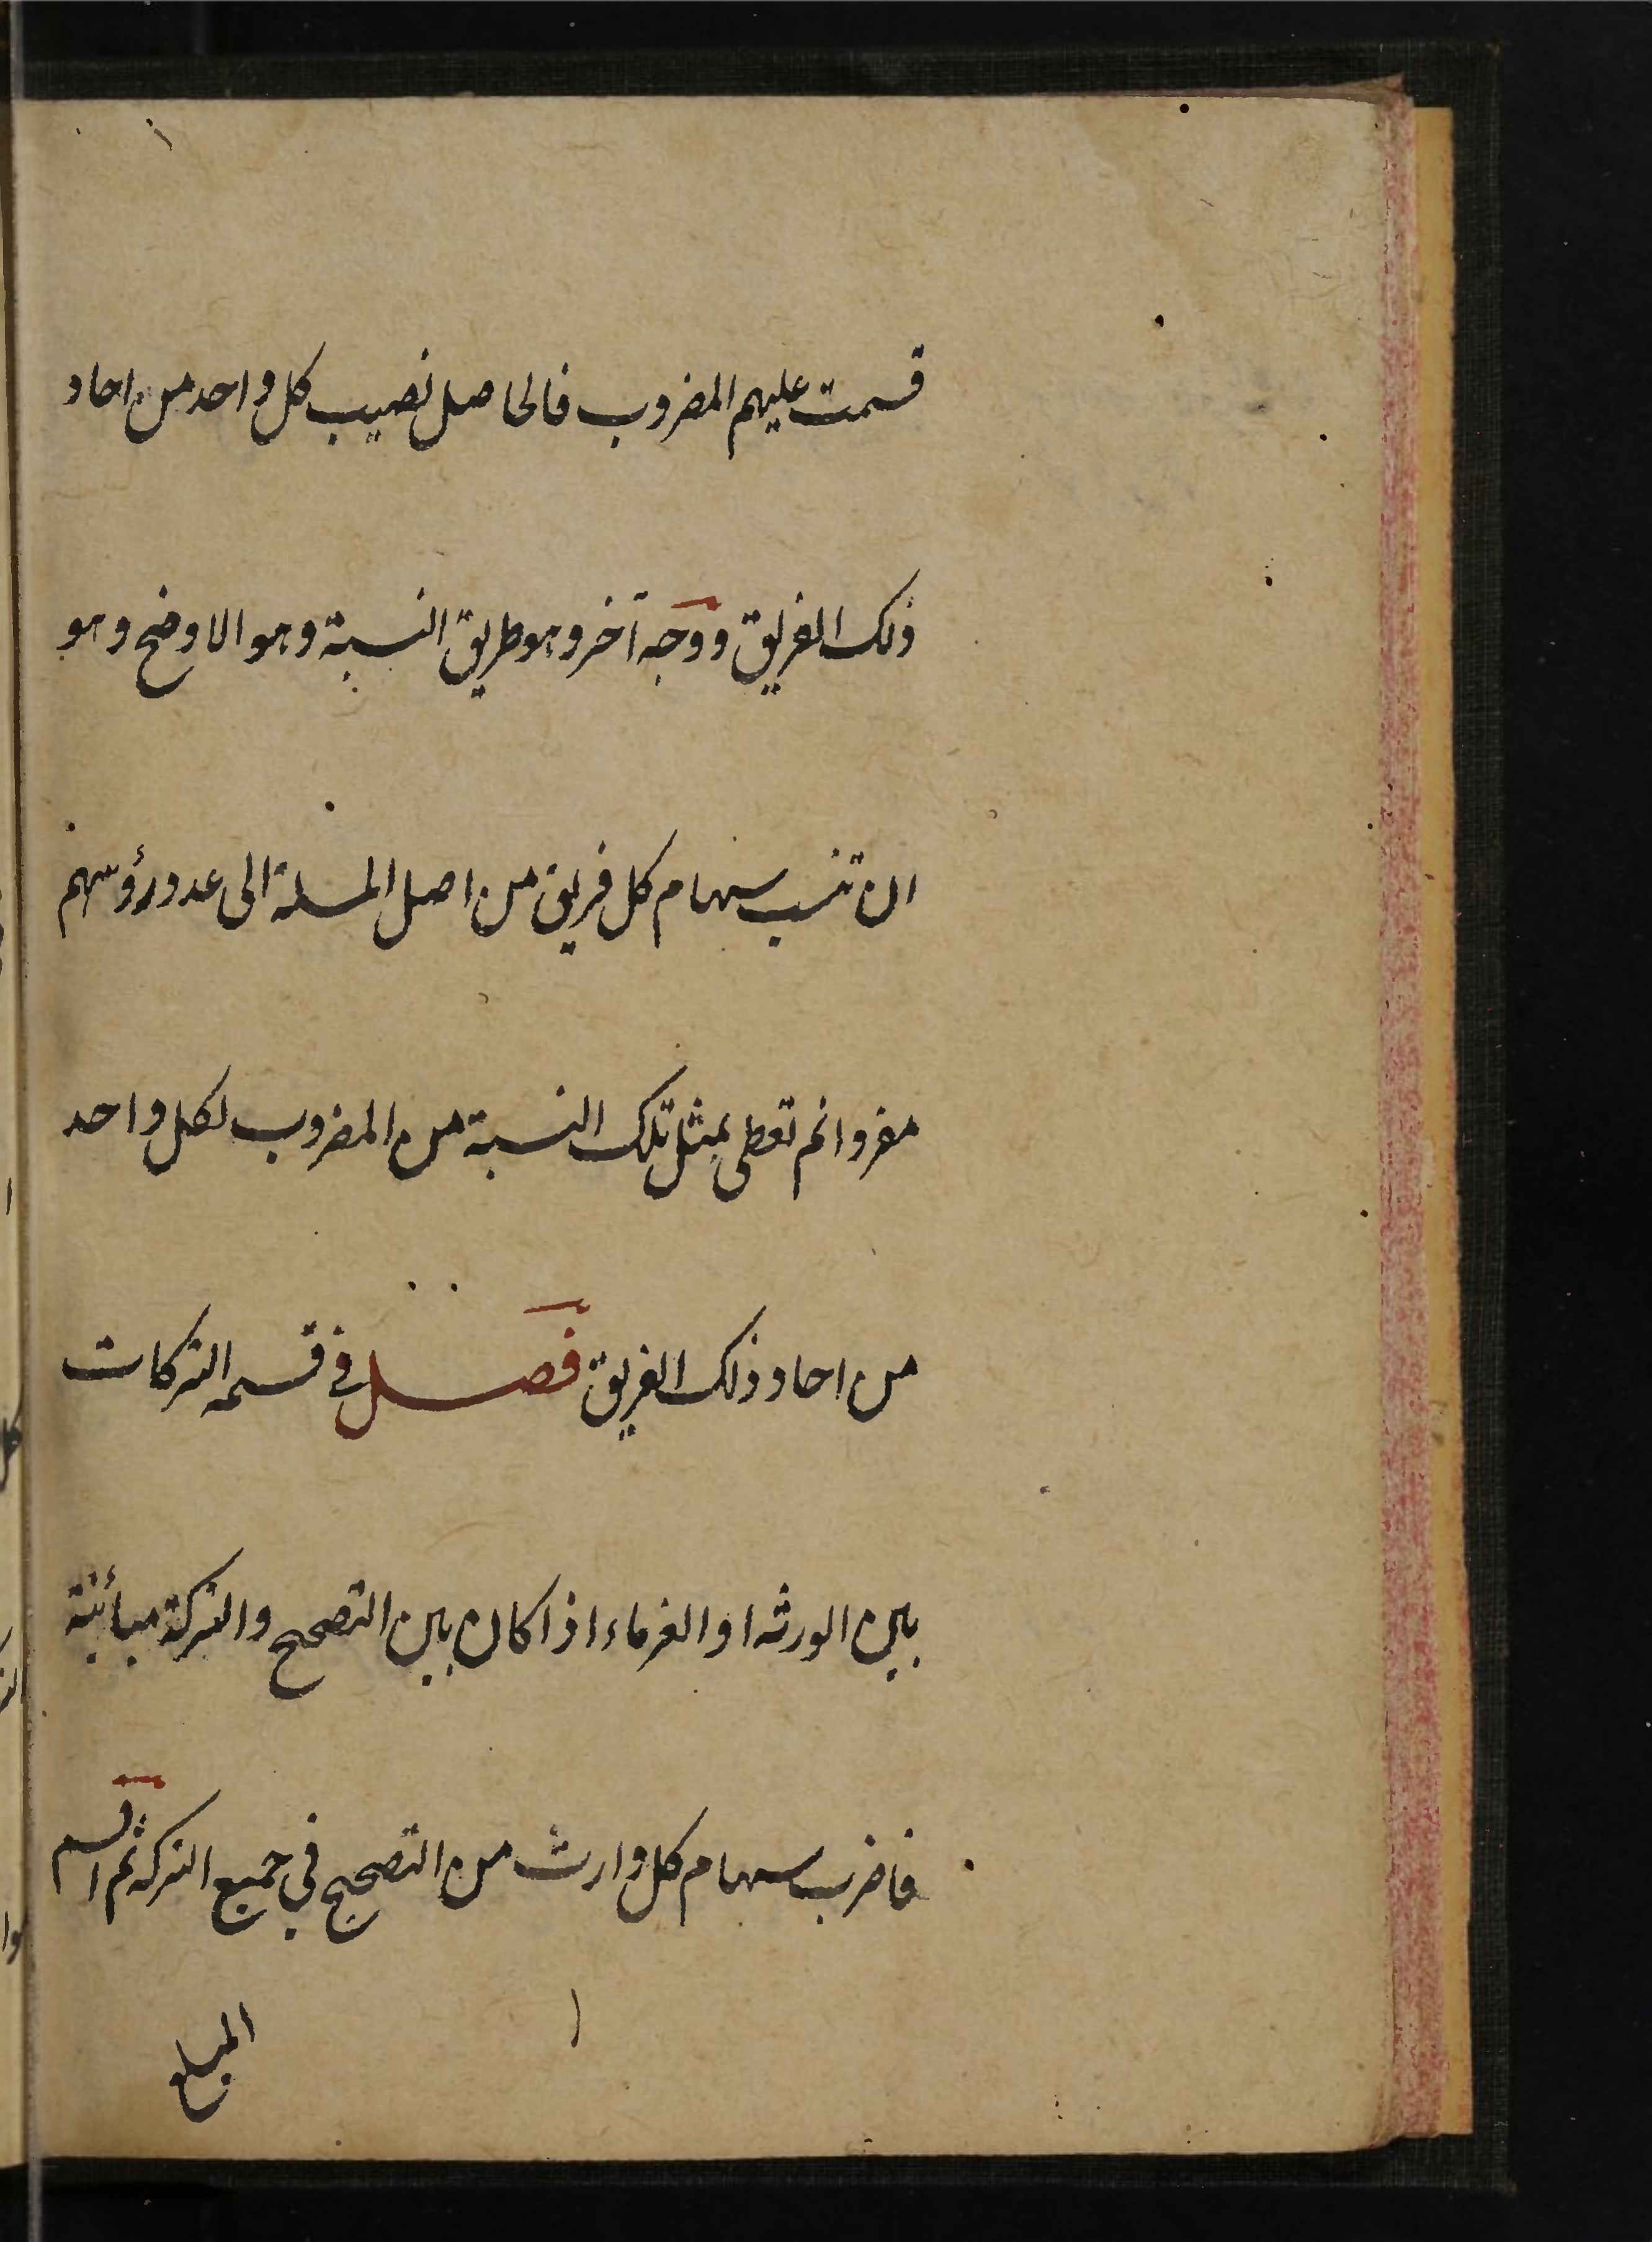 قسمت عليهم المضروب فالحاصل نصيب كل واحد من احاد
ذلك الفريق ووجه آخر وهو طريق النسبة وهو الاوضح وهو
ان تنسب سهام كل فريق من اصل المسلة الى عدد رؤسهم
مفردا ثم تعطى بمثل تلك النسبة من المضروب لكل واحد
من احاد ذلك الفريق فصل في قسمة التركات
بين الورثه او الغرماء اذا كان بين التصحيح والتركة مبائنة
فاضرب سهام كل وارث من التصحيح في جميع التركه ثم اقسم
المبلغ